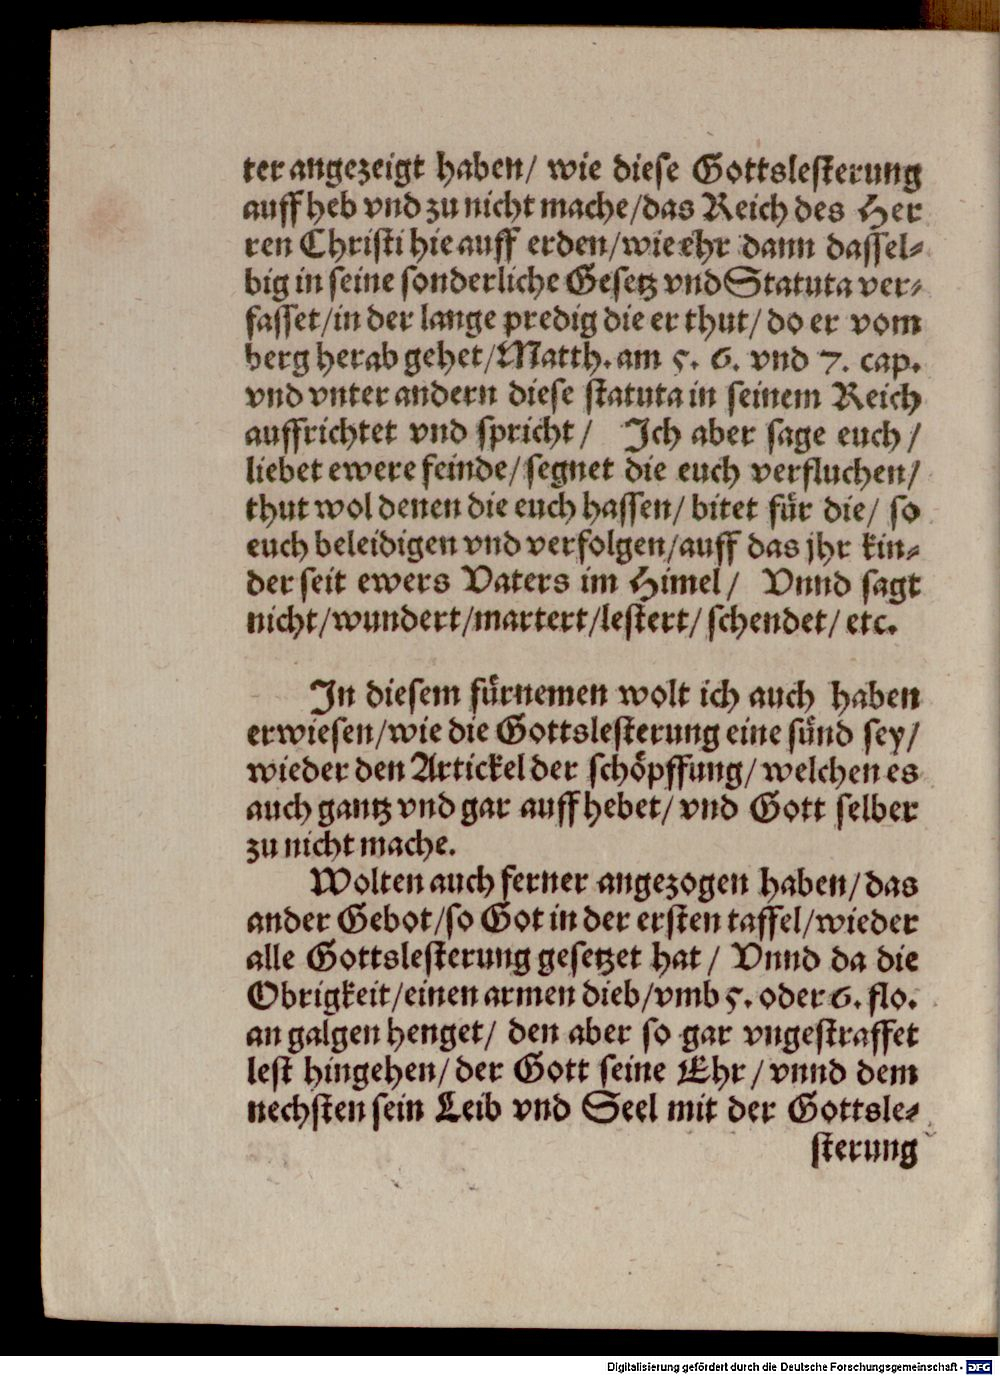 ter angezeigt haben/ wie diese Gottslesterung
auff heb vnd zu nicht mache/das Reich des Her
ren Christi hie auff erden/wie ehr dann dassel-
big in seine sonderliche Gesetz vnd Statuta ver-
fasset/in der lange predig die er thut/ do er vom
berg herab gehet/Matth. am 5. 6. vnd 7. cap.
vnd vnter andern diese statuta in seinem Reich
auffrichtet vnd spricht/ Ich aber sage euch/
liebet ewere feinde/segnet die euch verfluchen/
thut wol denen die euch hassen/ bitet für die/ so
euch beleidigen vnd verfolgen/auff das jhr kin-
der seit ewers Vaters im Himel/ Vnnd sagt
nicht/wundert/martert/lestert/ schendet/ etc.
In diesem fürnemen wolt ich auch haben
erwiesen/wie die Gottslesterung eine sünd sey/
wieder den Artickel der schöpffung/ welchen es
auch gantz vnd gar auff hebet/ vnd Gott selber
zu nicht mache.
Wolten auch ferner angezogen haben/das
ander Gebot/so Got in der ersten taffel/wieder
alle Gottslesterung gesetzet hat/ Vnnd da die
Obrigkeit/einen armen dieb/vmb 5. oder 6. flo.
an galgen henget/ den aber so gar vngestraffet
lest hingehen/ der Gott seine Ehr/ vnnd dem
nechsten sein Leib vnd Seel mit der Gottsle-
sterung
Digitalisierung gefördert durch die Deutsche Forschungsgemeinschaft - DFG